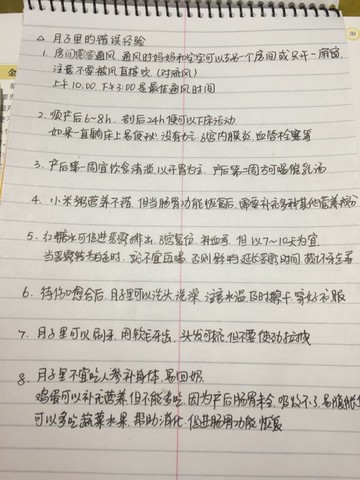 △ 月子里的错误经验
1. 房间需要通风，通风时妈妈和宝宝可以去另一个房间或只开一扇窗
注意不要被风直接吹（对流风）
上午10:00 下午3:00是最佳通风时间
2. 顺产后6~8h，剖后24h便可以下床活动
如果一直躺床上易便秘、没有力、子宫内膜炎、血管栓塞等
3. 产后第一周宜饮食清淡，以开胃为主，产后第二周方可喝催乳汤
4. 小米粥营养不错，但当肠胃功能恢复后，需要补充多种其他营养成分
5. 红糖水可促进恶露排出、子宫复位、补血等，但以7~10天为宜
当恶露转为白色时，就不宜再喝，否则
6. 待伤口愈合后，月子里可以洗头洗澡，注意水温，及时擦干，穿好衣服
7. 月子里可以刷牙，用软毛牙齿，头发可梳，但不要使劲拉扯
8. 月子里不宜吃人参补身体，易回奶
鸡蛋可以补充营养，但不能多吃，因为产后肠胃未全，吸收不了，易
可以多吃蔬菜水果，帮助消化，促进肠胃功能恢复